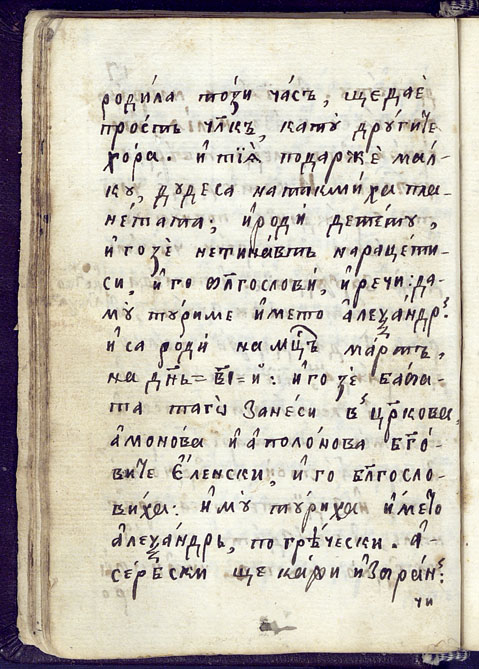 роди́ла то́зи ча́съ, ще даѐ
про́стъ чл҃къ, като̀ дрꙋ́гите
хо́ра. и҆ тїѧ̀ подаржѐ мал-
кꙋ, дꙋдеса натакми́ха пла-
не́тата; и҆роди̂ дете́тꙋ,
и҆го зѐ нетина́втъ нараце́ти-
си, и҆го бл҃гослови̂, и҆речи: да-
мꙋ̀ тꙋ́риме и҆́мето а҆леѯа́ндръ.
и҆са роди̂ на мц҃ъ ма́ртъ,
на дн҃ь = в҃і = и҆: и҆го зѐ баща-
та тага̀ занеси въ цр҃кова,
а҆моно́ва и҆ а҆поло́нова бг҃о-
вите є҆́ленски, и҆го бл҃госло-
виха: и҆мꙋ̀ тꙋ́риха и҆́мето
а҆леѯа́ндръ, по грѣ́чески. а҆-
се́рбски ще ка́жи и҆збра́нъ:
чи